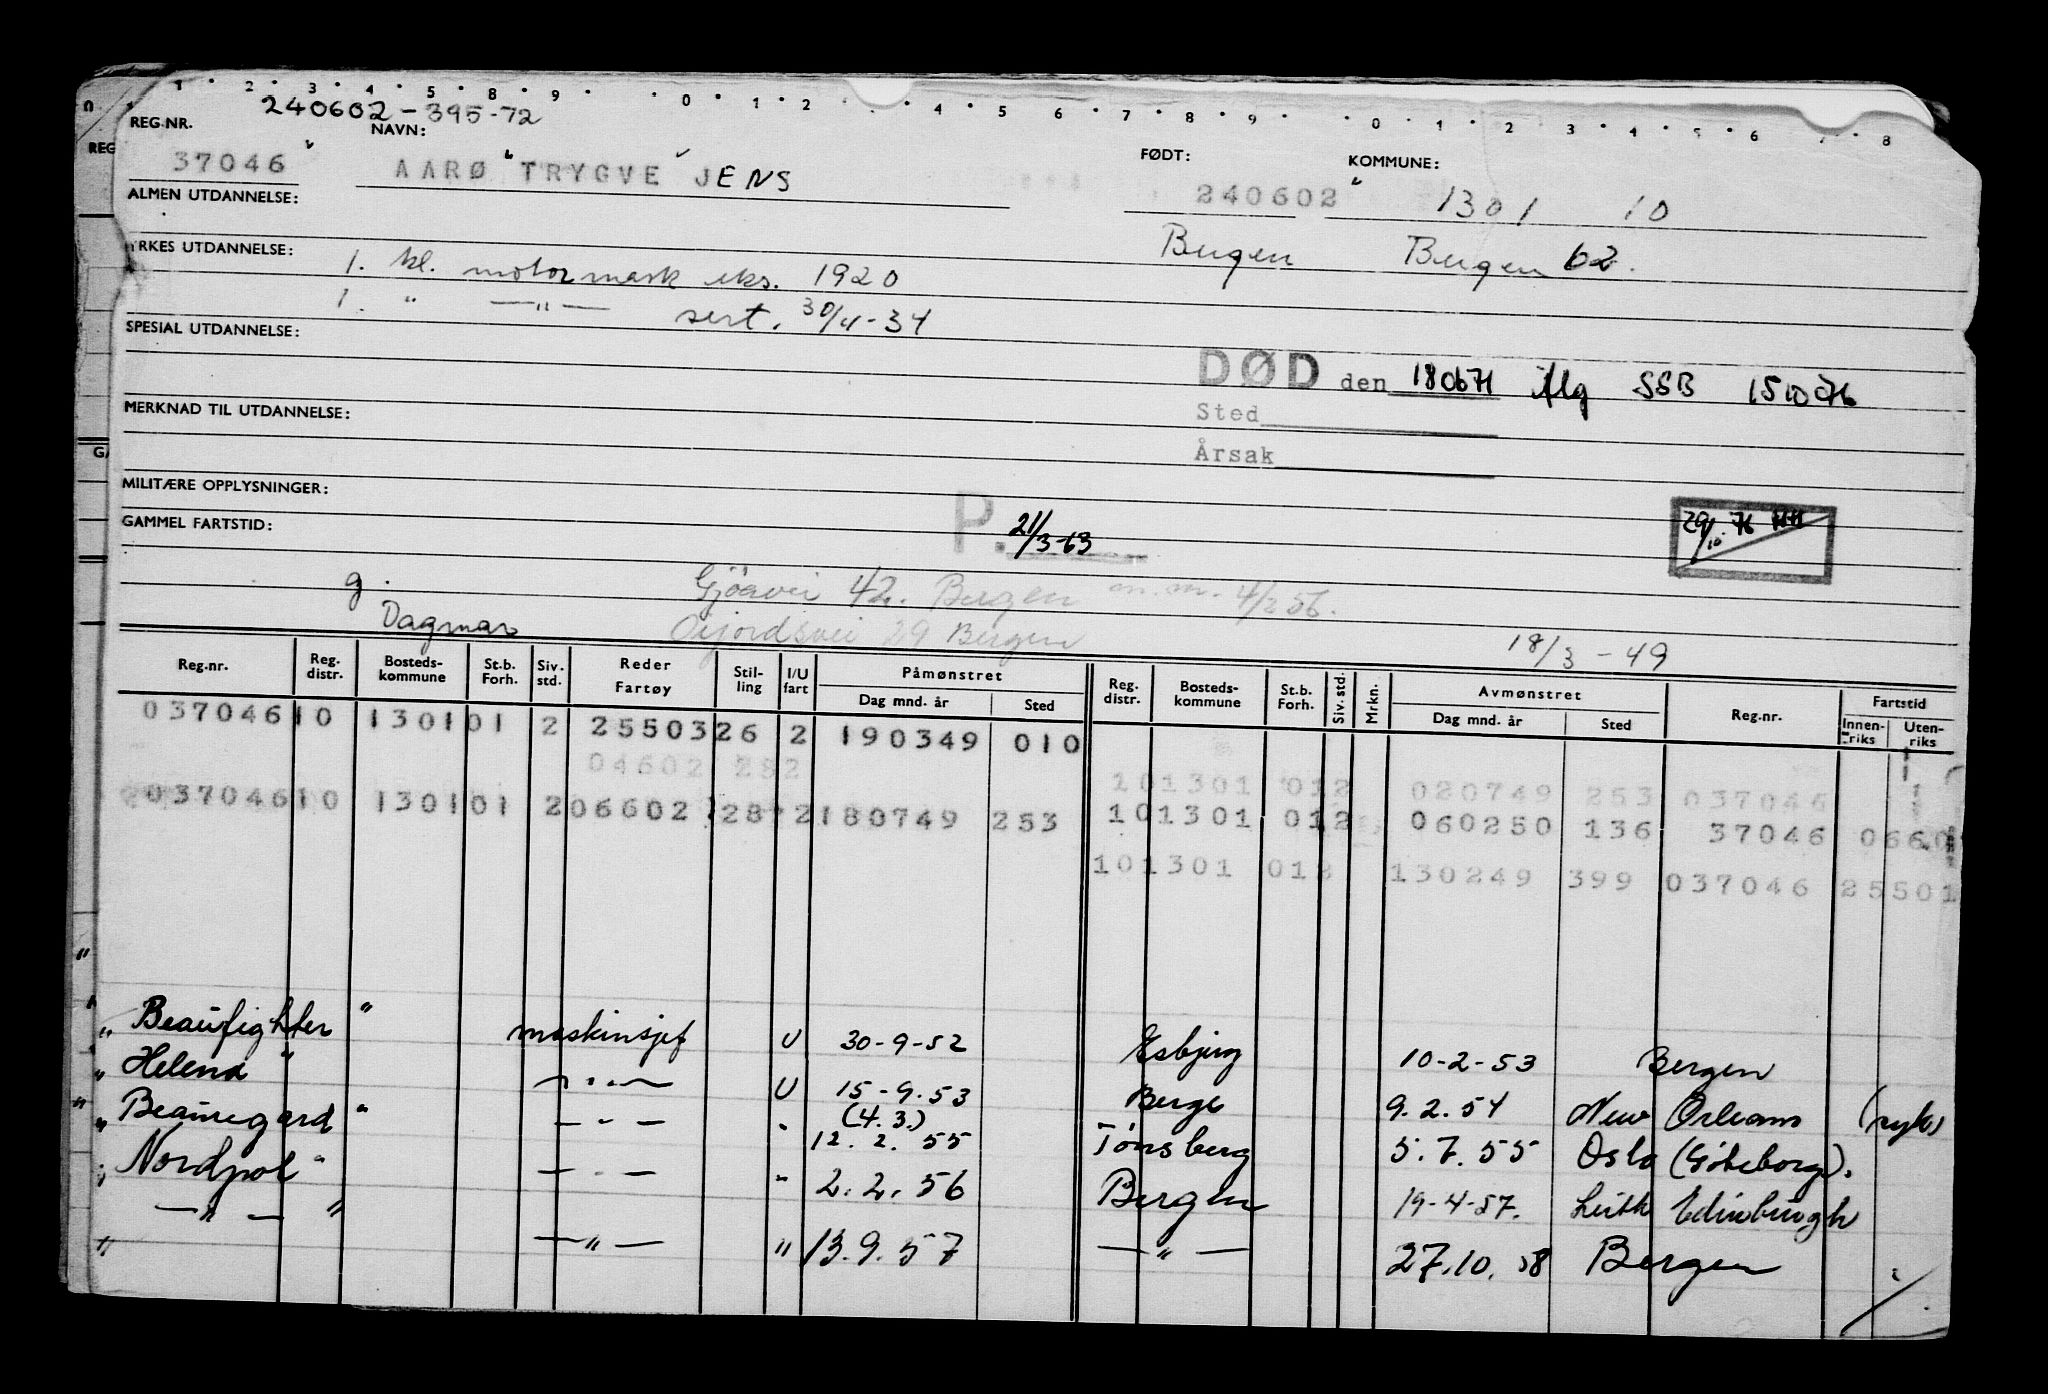 1 2 3 4 5 8 9 0 1 2 4 5 6 7 8 9 0 1 2 3 4 5 6 7 8
240602-395-72
REG.NR. NAVN: FØDT: KOMMUNE:
37046 AARØ TRYGVE JENS 240602 1301 10
ALMEN UTDANNELSE:
Bergen Bergen 62.
YRKES UTDANNELSE: 1. kl. motormask eks. 1920
1. " —"— sert. 30/11-34
SPESIAL UTDANNELSE:
DØD den 180671 Mlg SSB 151076
MERKNAD TIL UTDANNELSE: Sted
Årsak
MILITÆRE OPPLYSNINGER:
P. 21/3-63 29/10 76 HH
GAMMEL FARTSTID:
g. Gjøavei 42. Bergen m.m. 4/2 56.
Dagmar 29 Bergen 18/3-49
Reg.nr. Reg. distr. Bosteds-kommune St.b. Forh. Siv. std. Reder Fartøy Stil-ling I/U fart Påmønstret Dag mnd. år Sted Reg. distr. Bosteds-kommune St.b. Forh. Siv. std. Mrkn. Avmønstret Dag mnd. år Sted Reg.nr. Fartstid Innen-riks Uten-riks
037046 10 1301 01 2 25503 26 2 190349 010
04602 282 101301 012 020749 253 037046
037046 10 1301 01 2 06602 28 2 180749 253 101301 012 060250 136 37046 0660
101301 012 130249 399 037046 25501
" Beaufighter " maskinsjef U 30-9-52 Esbjerg 10-2-53 Bergen
" Helena " —"— U 15-9.53 Berge 9.2.54 New Orleans (syk)
(4.3.)
" Beauregard " —"— " 12.2.55 Tønsberg 5.7.55 Oslo (Göteborg).
" Nordpol " —"— " 2.2.56 Bergen 19-4-57. Leith Edinburgh
" —"— " —"— " 13.9.57 —"— 27.10.58 Bergen